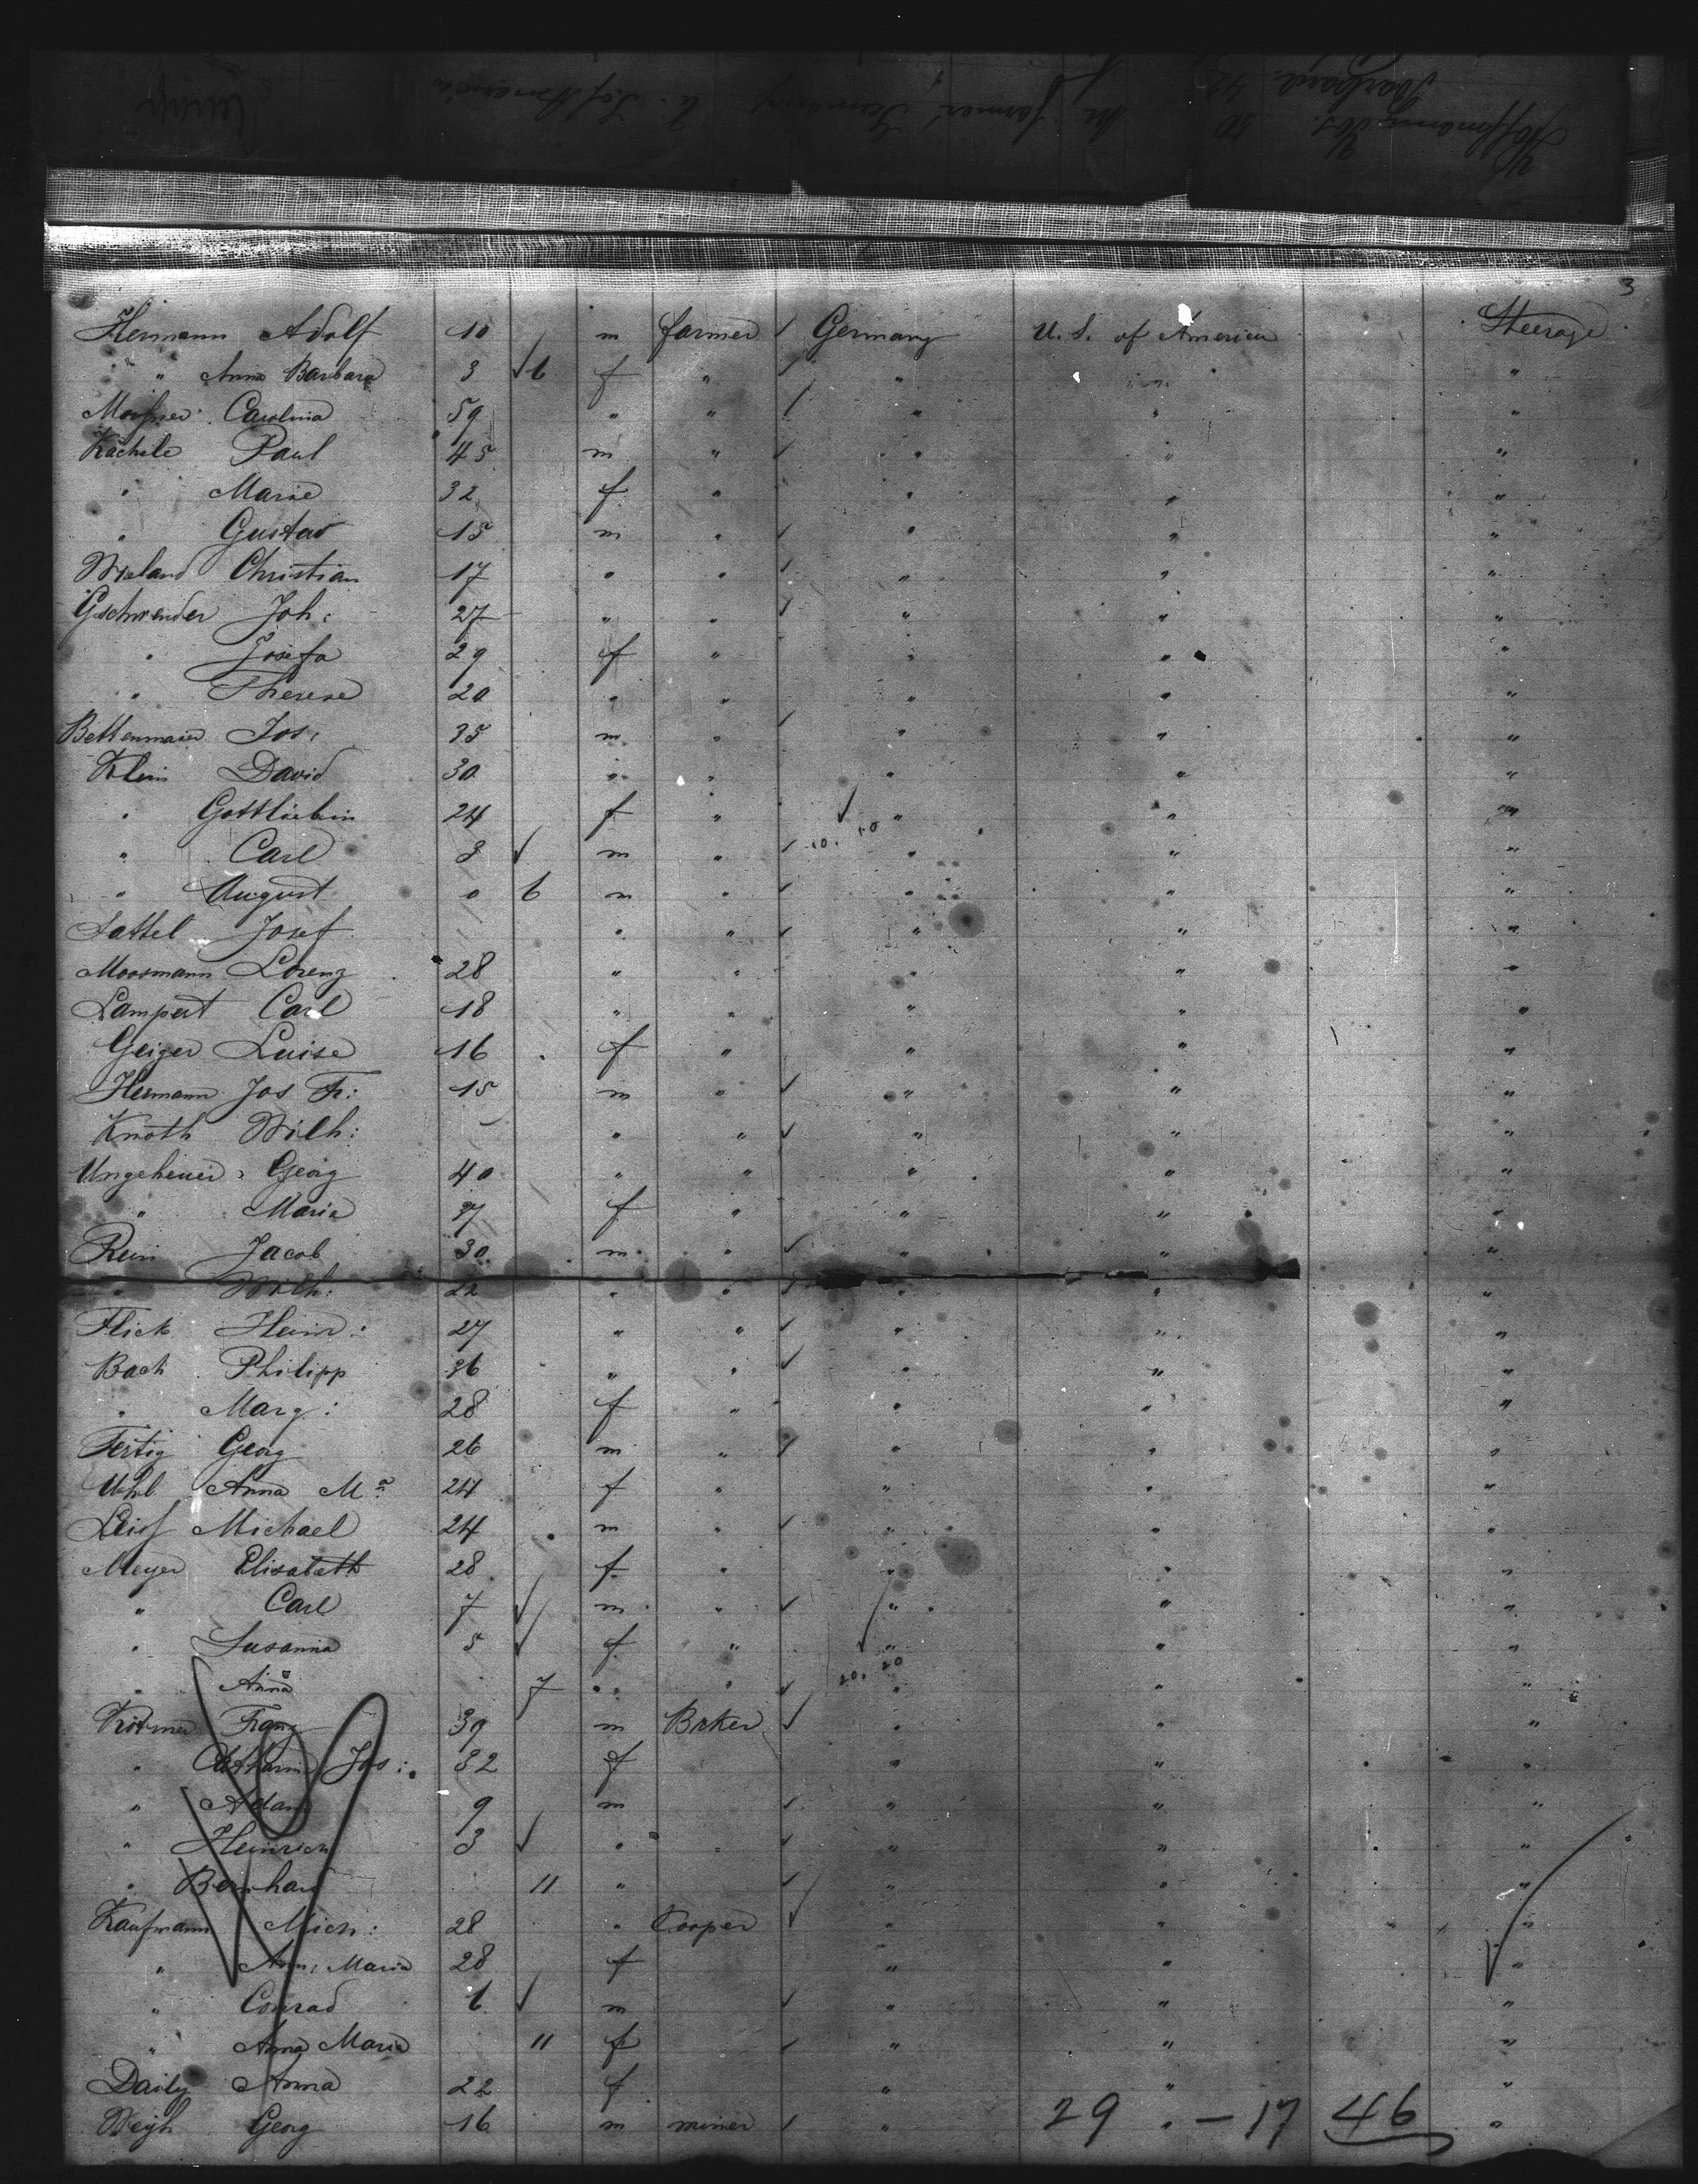 3
Hermann Adolf 10 m farmer Germany U. S. of America Steerage
" " Anna Barbara 3 6 f " " " "
Carolina 59 " " " " "
Kächele Paul 45 m " " " "
" Marie 32 f " " " "
" Gustav 15 m " " " "
Wieland Christian 17 " " " " "
Gschwender Joh: 27 " " " " "
" Josefa 29 f " " " "
" Therese 20 " " " " "
Bettenmaier Jos: 35 m " " " "
Klein David 30 " " " " "
" Gottliebin 24 f " " " "
" Carl 3 m " " " "
" August 0 6 m " " " "
Sattel Josef " " " " "
Moosmann Lorenz 28 " " " " "
Lampert Carl 18 " " " " "
Geiger Luise 16 f " " " "
Hermann Jos Fr: 15 m " " " "
Knoth Wilh: " " " " "
Ungeheuer Georg 40 " " " " "
" Maria 37 f " " " "
Rein Jacob 30 m " " " "
" Wilh: 22 " " " " "
Flick Heinr: 27 " " " " "
Bach Philipp 36 " " " " "
" Marg: 28 f " " " "
Fertig Georg 26 m " " " "
Uhl Anna Mª 24 f " " " "
Michael 24 m " " " "
Meyer Elisabeth 28 f " " " "
" Carl 7 m " " " "
" Susanna 5 f " " " "
" Anna 7 " " " " "
Franz 39 m Baker " " "
" Catharina Jos: 32 f " " "
" Adam 9 m " " "
" Heinrich 3 " " " " "
" Bernhard 11 " " " "
Kaufmann Mich: 28 " Cooper " " "
" Ann: Maria 28 f " " "
" Conrad 6 m " " "
" Anna Maria 11 f " " "
Daily Anna 22 f " " "
Weigh Georg 16 m miner " " "
29 - 17 46